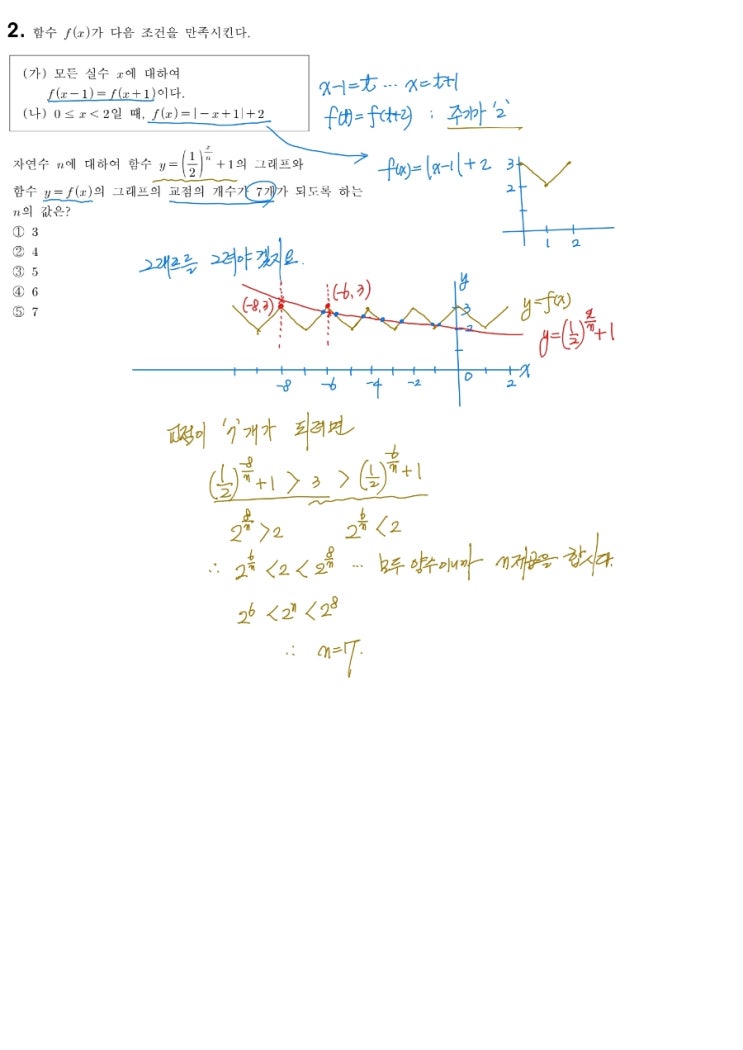 2. 함수 f(x)가 다음 조건을 만족시킨다.
(가) 모든 실수 x에 대하여
f(x-1)=f(x+1)이다.
(나) 0≤x<2일 때, f(x)=|-x+1|+2
x-1=t … x=t+1
f(t)=f(t+2) : 주기가 '2'
자연수 n에 대하여 함수 y=(1/2)^(x/n)+1의 그래프와
함수 y=f(x)의 그래프의 교점의 개수가 7개가 되도록 하는
n의 값은?
① 3
② 4
③ 5
④ 6
⑤ 7
f(x)=|x-1|+2
3
2
1 2
그래프를 그려야 겠지요.
(-8,3)
(-6,3)
y
3
2
y=f(x)
y=(1/2)^(x/n)+1
-8 -6 -4 -2 0 2 x
교점이 '7'개가 되려면
(1/2)^(-8/n)+1 > 3 > (1/2)^(-6/n)+1
2^(8/n)>2 2^(6/n)<2
∴ 2^(6/n)<2<2^(8/n) … 모두 양수이니까 n제곱을 합시다.
2^6<2^n<2^8
∴ n=7.